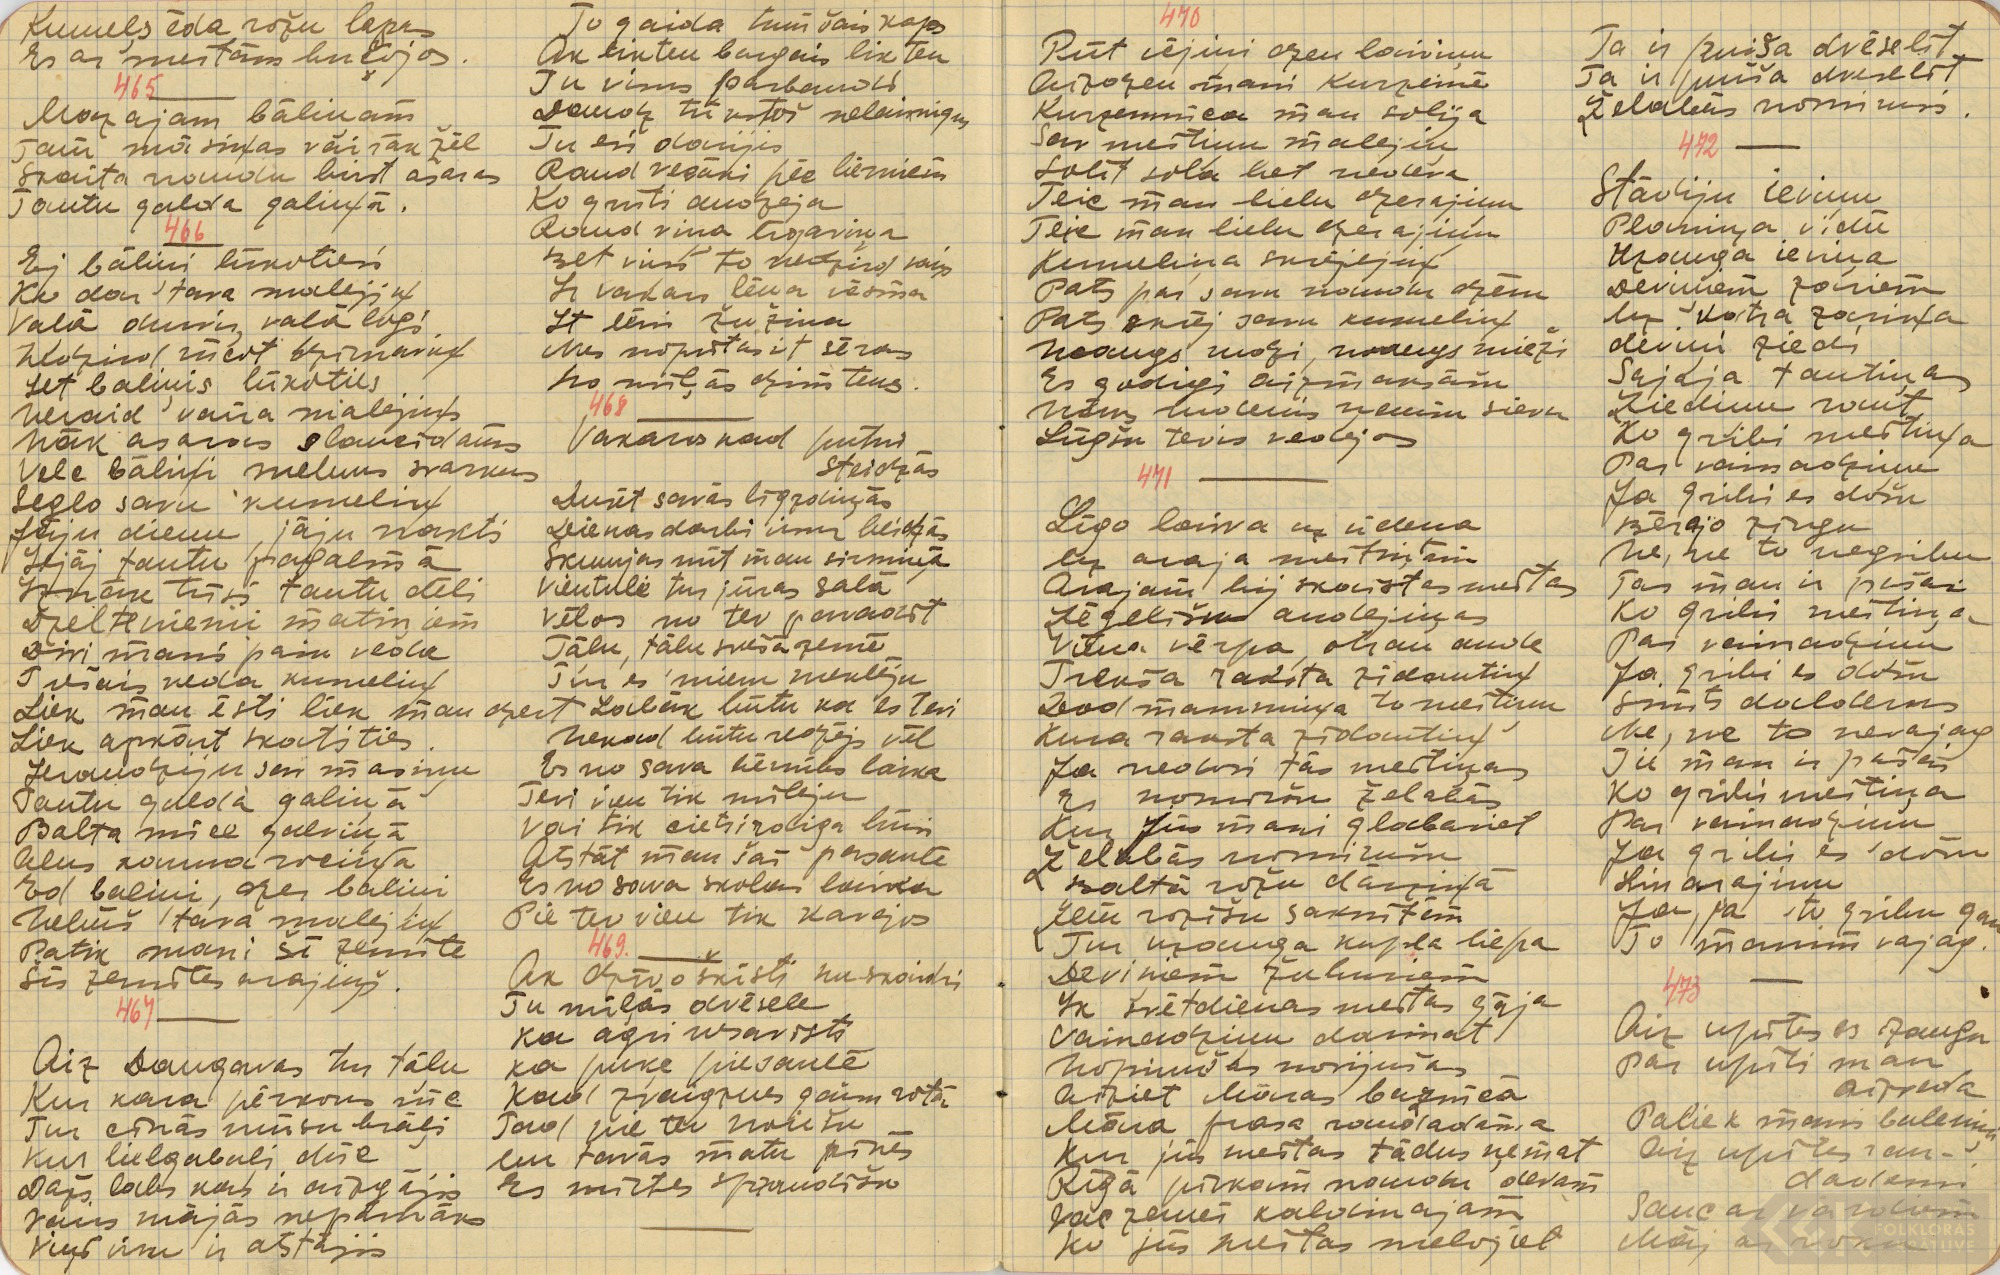 Kumeļš ēda rožu lapas
Es ar meitām bučojos.
465
Mazajam bāliņam
Tam māsiņas vairāk žēl
Skaita naudu birst asaras
Tautu galda galiņā.
466
Ej bāliņi lūkoties
Ko dar tava malējiņ
Vaļā durvis, vaļā logi
Nedzird rūcot dzirnaviņ
Iet baliņis lūkoties
Neraid vaira malējiņš
Nāk asaras slaucīdams
Velc bāliņi melnus svārkus
Seglo savu kumeliņ
Jāju dienu, jāju nakti
Iejāj tautu pagalmā
Iznāk trīsi tautu dēli
Dzelteniemi matiņiem
Divi mani pašu veda
Trešais veda kumeliņ
Liek man ēsti liek man dzert
Liek apkārt skatīties.
Ieraudzīju sav māsiņu
Tautu galda galiņā
Balta mice galviņā
Alus kanna rociņā
Ed baliņi, dzer baliņi
Nebūs tava malējiņ
Patik mani šī zemīte
Šīs zemītes arājiņš.
467
Aiz Daugavas tur tālu
Kur kara pērkons rūc
Tur cīnās mūsu brāļi
Kur lielgabali dūc
Dažs labs kas ir aizgājis
Vairs mājās nepārnāks
Viņš visu ir atstājis
To gaida tumšais kaps
Ak likten bargais likten
Tu visus pārbaudi
Daudz tūkstoš nelaimīgus
Tu esi darijis
Raud vecāki pēc bērniem
Ko grūti audzēja
Raud viņa līgaviņa
Bet viņš to nedzird vairs
Ir vakars lēna vēsma
It lēni žužina
Mēs nopūtas it sēras
No mīļās dzimtenes.
468
Vakaros kad putni
steidzās
Dusēt savās ligzdiņās
Dienas darbi visur beidzās
Skumjas mīt man sirsniņā
Vientulē tur jūras salā
Vēlos no tev pavadīt
Tālu, tālu svešā zemē
Tur es mieru meklēju
Labāk būtu ka es Tevi
Nekad būtu redzējs vēl
Es no sava bērnības laika
Tevi vien tik mīlēju
Vai tik cietsirdīga būsi
Atstāt man šai pasaulē
Es no sava skolas laika
Pie tev vien tik kavējos
469.
Ak dzīvo šķīsti nu skaidri
Tu mīļās dvēsele
Ka agri vasarīsts
Ka puķe piesaulē
Kad zvaigznes gaismotā
Tad pie tev
Un tavās matu pīnēs
Es mirtes spraudīšu
470
Pūt vējiņi dzen laiviņu
Aizdzen mani Kurzemē
Kurzemnieca man solīja
Sav meitiņu malējiņ
Solīt sola bet nedeva
Teic man lielu dzērājiņu
Teic man lielu dzērājiņu
Kumeliņa skrējējiņ
Pats par savu naudu dzēru
Pats skrēj savu kumeliņ
Noaugs rudzi, noaugs mieži
Es godīgi aizmaksāšu
Ņēmu sievu
Lūgšu tevis vedējos
471
Līgo laiva uz ūdeņa
Uz arāja meitiņām
Arajam bij skaistas meitas
Zēģelīšu audējiņas
Viena vērpa, otra auda
Trešā raksta zīdautiņ
Dod māmmiņa to meitiņu
Kura raksta zīdautiņ
Ja nedosi tās meitiņas
Es nomiršu žēlabās
Kur jūs mani glabāsiet
Žēlabās nomirušu
Baltā rožu dārziņā
Zem rozīšu saknītēm
Tur uzauga kupla liepa
Deviņiem žuburiem
Ik svētdienas meitas gāja
Vainadziņu darināt
Nopinušas norijušas
Aiziet Māras baznīcā
Māra prasa raudādama
Kur jūs meitas tādus ņēmat
Rīgā pirkām naudu devām
Vāczemei kaldinājam
Ko jūs meitas melojiet
Ta ir puiša dvēselīt
Ta ir puiša dvēselīt
Žēlabās nomiruši.
472
Stādīju ieviņu
Pļaviņa vidū
Uzauga ieviņa
Deviņiem zariem
Uz katra zariņa
deviņi ziedi
Sajāja tautiņas
Ziediņu raut
Ko gribi meitiņa
Par vainadziņu
Ja gribi es došu
bērajo zirgu
Ne, ne to negribu
Tas man ir pašai
Ko gribi meitiņa
Par vainadziņu
Ja gribi es došu
Simts dalderus
Ne, ne to nevajag
Tie man ir pašai
Ko gribi meitiņa
Par vainadziņu
Ja gribi es došu
Sin arajiņu
Ja, ja to gribu gan
To manim vajag.
473
Aiz upītes es izaugu
Par upīti man
aizveda
Paliek mani baleniņi
Aiz upītes rau-
dadami
Sauc ar vārdiem
Māj ar roku
FOLKLORAS
KRĀTUVE